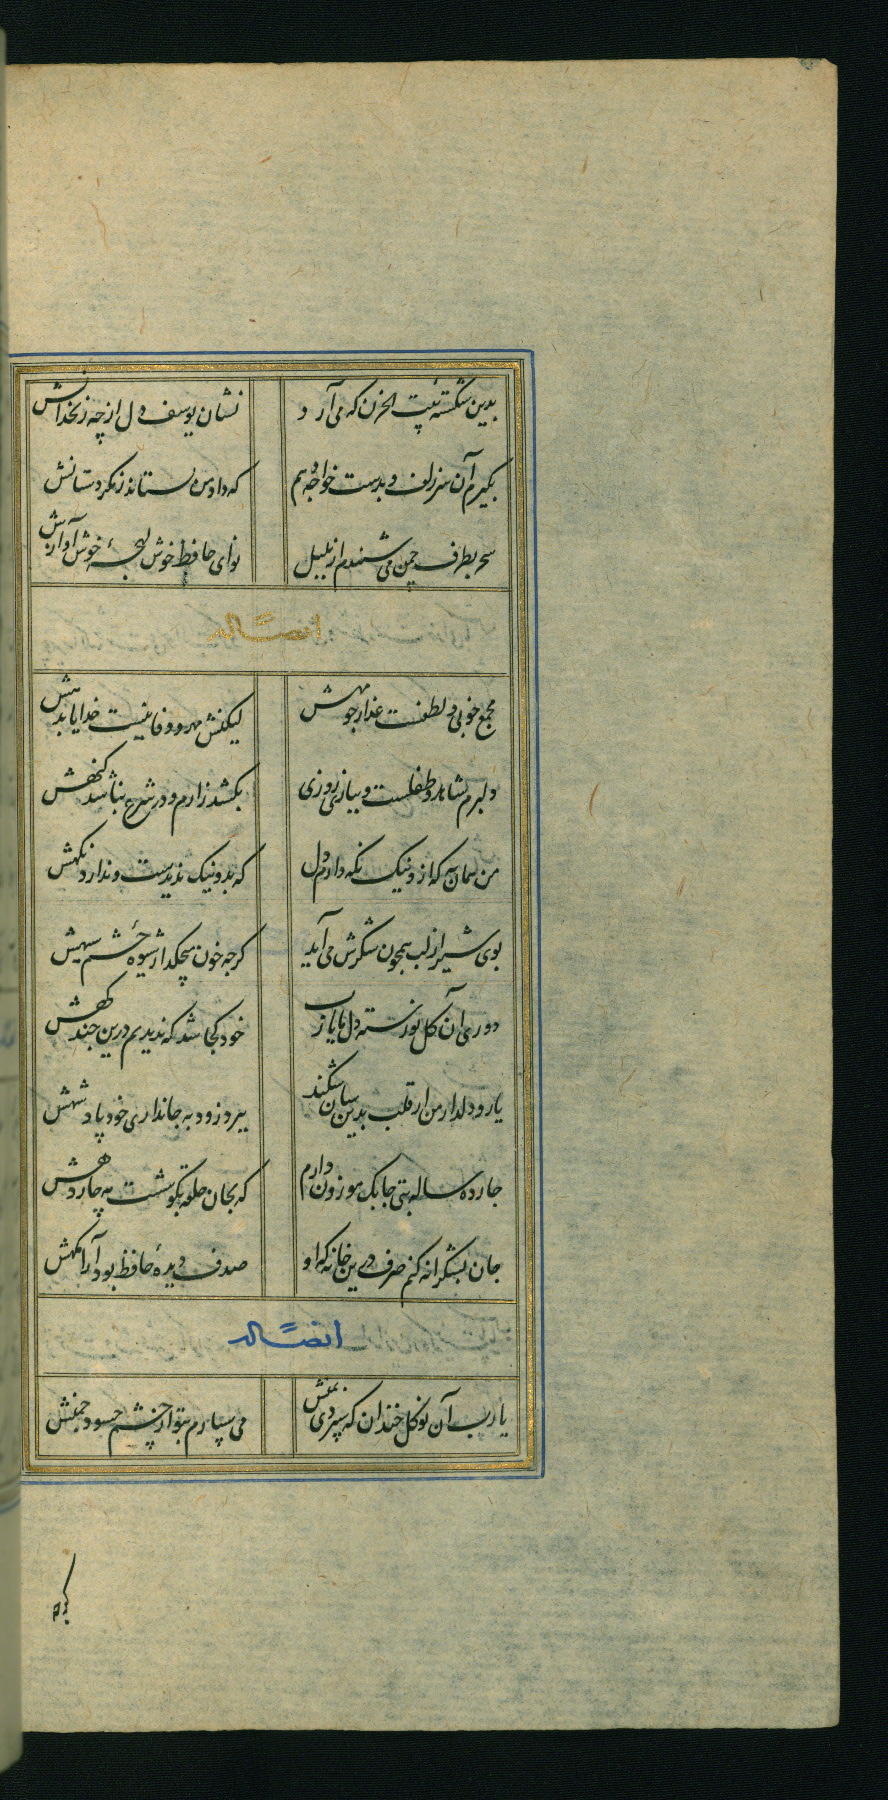 بدین شکسته بیت الحزن که می آرد نشان یوسف دل از چه زنخدانش
بکیرم آن سر زلف و بدست خواجه دهم که داد من بستاند ز مکر و دستانش
سحر بطرف چمن می شنیدم از بلبل نوای حافظ خوش لهجهٔ خوش آوازش
ایضًا له
مجمع خوبی و لطفست عذار چو مهش لیکنش مهر و وفا نیست خدایا بدهش
دلبرم شاهد و طفلست و ببازی روزی بکشد زارم و در شرع نباشد کنهش
من همان به که ازو نیک نکه دارم دل که بد و نیک ندیدست و ندارد نکهش
بوی شیر از لب همچون شکرش می آید کرچه خون میچکد از شیوهٔ چشم سیهش
در پی آن کل نورسته دل ما یا رب خود کجا شد که ندیدیم درین چند کهش
یار دلدار من ار قلب بدین سان شکند ببرد زود به جانداری خود پادشهش
چارده ساله بتی چابک موزون دارم که بجان حلقه بکوشست مه چاردهش
جان بشکرانه کنم صرف درین خانه که او صدف دیدهٔ حافظ بود آرامکهش
ایضًا له
یا رب آن نوکل خندان که سپردی بمنش می سپارم بتو از چشم حسود چمنش